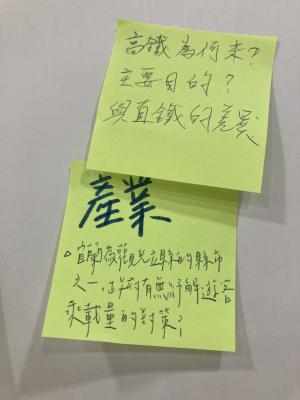 高鐵為何來?
主要目的?
與直鐵的差異
產業
。宜蘭為觀光立縣的縣市
之一,政府有無紓解遊客
乘載量的對策?